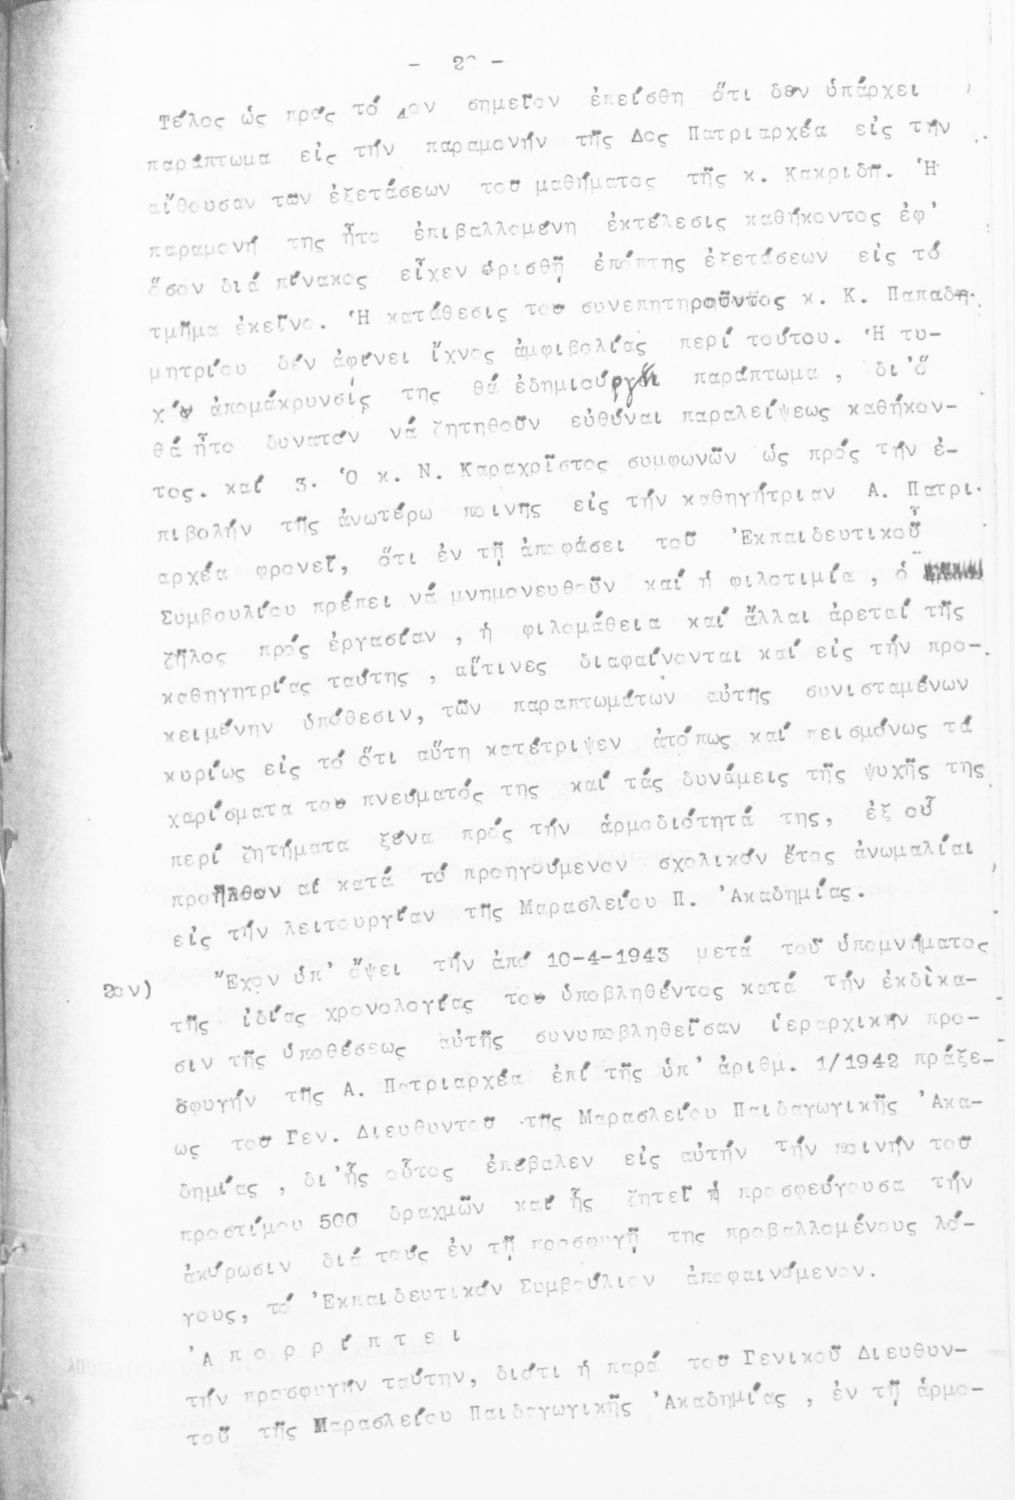 Τέλος ὡς πρός τό 4ον σημεῖον ἐπείσθη ὅτι δέν ὑπάρχει
παράπτωμα εἰς τήν παραμονήν τῆς Δος Πατριαρχέα εἰς τήν
αἴθουσαν τῶν ἐξετάσεων τοῦ μαθήματος τῆς κ. Κακριδῆ. Ἡ
παραμονή της ἦτο ἐπιβαλλομένη ἐκτέλεσις καθήκοντος ἐφ'
ὅσον διά πίνακος εἶχεν ὁρισθῇ ἐπόπτης ἐξετάσεων εἰς τό
τμῆμα ἐκεῖνο. Ἡ κατάθεσις τοῦ συνεπητηροῦντος κ. Κ. Παπαδη-
μητρίου δέν ἀφίνει ἴχνος ἀμφιβολίας περί τούτου. Ἡ τυ-
χόν ἀπομάκρυνσίς της θά ἐδημιούργει παράπτωμα, δι'ὅ
θά ἦτο δυνατόν νά ζητηθοῦν εὐθύναι παραλείψεως καθήκον-
τος. καί 3. Ὁ κ. Ν. Καραχρῖστος συμφωνῶν ὡς πρός τήν ἐ-
πιβολήν τῆς ἀνωτέρω ποινῆς εἰς τήν καθηγήτριαν Α. Πατρι-
αρχέα φρονεῖ, ὅτι ἐν τῇ ἀποφάσει τοῦ Ἐκπαιδευτικοῦ
Συμβουλίου πρέπει νά μνημονευθοῦν καί ἡ φιλοτιμία, ὁ
ζῆλος πρός ἐργασίαν, ἡ φιλομάθεια καί ἄλλαι ἀρεταί τῆς
καθηγητρίας ταύτης, αἵτινες διαφαίνονται καί εἰς τήν προ-
κειμένην ὑπόθεσιν, τῶν παραπτωμάτων αὐτῆς συνισταμένων
κυρίως εἰς τό ὅτι αὕτη κατέτριψεν ἀτόπως καί πεισμόνως τά
χαρίσματα του πνεύματός της καί τάς δυνάμεις τῆς ψυχῆς της
περί ζητήματα ξένα πρός τήν ἁρμοδιότητά της, ἐξ οὗ
προῆλθον αἱ κατά τό προηγούμενον σχολικόν ἔτος ἀνωμαλίαι
εἰς τήν λειτουργίαν τῆς Μαρασλείου Π. Ἀκαδημίας.
2ον) Ἔχον ὑπ' ὄψει τήν ἀπό 10-4-1943 μετά τοῦ ὑπομνήματος
τῆς ἰδίας χρονολογίας του ὑποβληθέντος κατά τήν ἐκδίκα-
σιν τῆς ὑποθέσεως αὐτῆς συνυποβληθεῖσαν ἱεραρχικήν προ-
σφυγήν τῆς Α. Πατριαρχέα ἐπί τῆς ὑπ' ἀριθμ. 1/1942 πράξε-
ως τοῦ Γεν. Διευθυντοῦ τῆς Μαρασλείου Παιδαγωγικῆς Ἀκα-
δημίας, δι'ἧς οὗτος ἐπέβαλεν εἰς αὐτήν τήν ποινήν τοῦ
προστίμου 500 δραχμῶν καί ἧς ζητεῖ ἡ προσφεύγουσα τήν
ἀκύρωσιν διά τούς ἐν τῇ προσφυγῇ της προβαλλομένους λό-
γους, τό Ἐκπαιδευτικόν Συμβούλιον ἀποφαινόμενον.
Ἀ π ο ρ ρ ί π τ ε ι
τήν προσφυγήν ταύτην, διότι ἡ παρά τοῦ Γενικοῦ Διευθυν-
τοῦ τῆς Μαρασλείου Παιδαγωγικῆς Ἀκαδημίας, ἐν τῇ ἁρμο-